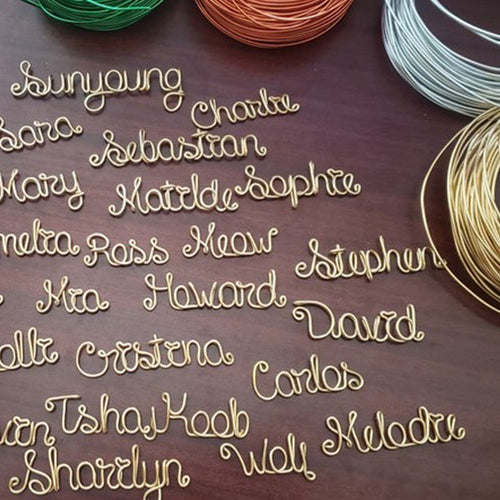 Sunyoung
Charlie
Sara
Sebastian
Mary
Matilde
Sophie
melia
Ross
Meow
Stephen
Mia
Howard
David
olli
Cristina
Carlos
vin
Tshaj
Koob
Melodie
Sharilyn
Wolf